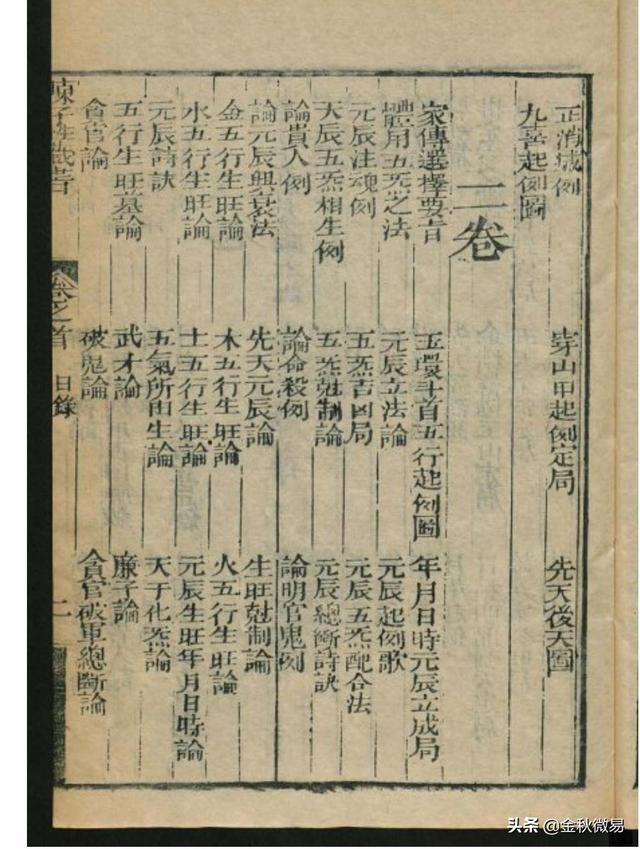 正消滅例　穿山甲起例定局　先天後天圖
九喜起例圖
二卷
家傳選擇要旨　玉環斗首五行起例圖　年月日時元辰立成局
體用五炁之法　元辰立法論　元辰起例歌
元辰注魂例　五炁吉凶局　元辰五炁配合法
天辰五炁相生例　五炁尅制論　元辰總斷詩訣
論貴人例　論命殺例　論明官鬼例
論元辰興衰法　先天元辰論　生旺尅制論
金五行生旺論　木五行生旺論　火五行生旺論
水五行生旺論　土五行生旺論　元辰生旺年月日時論
元辰詩訣　五氣所由生論　天干化炁論
五行生旺墓論　武才論　廉子論
貪官論　破鬼論　貪官破軍總斷論
陳子性藏書　卷之首　目錄　二
头条 @金秋微易